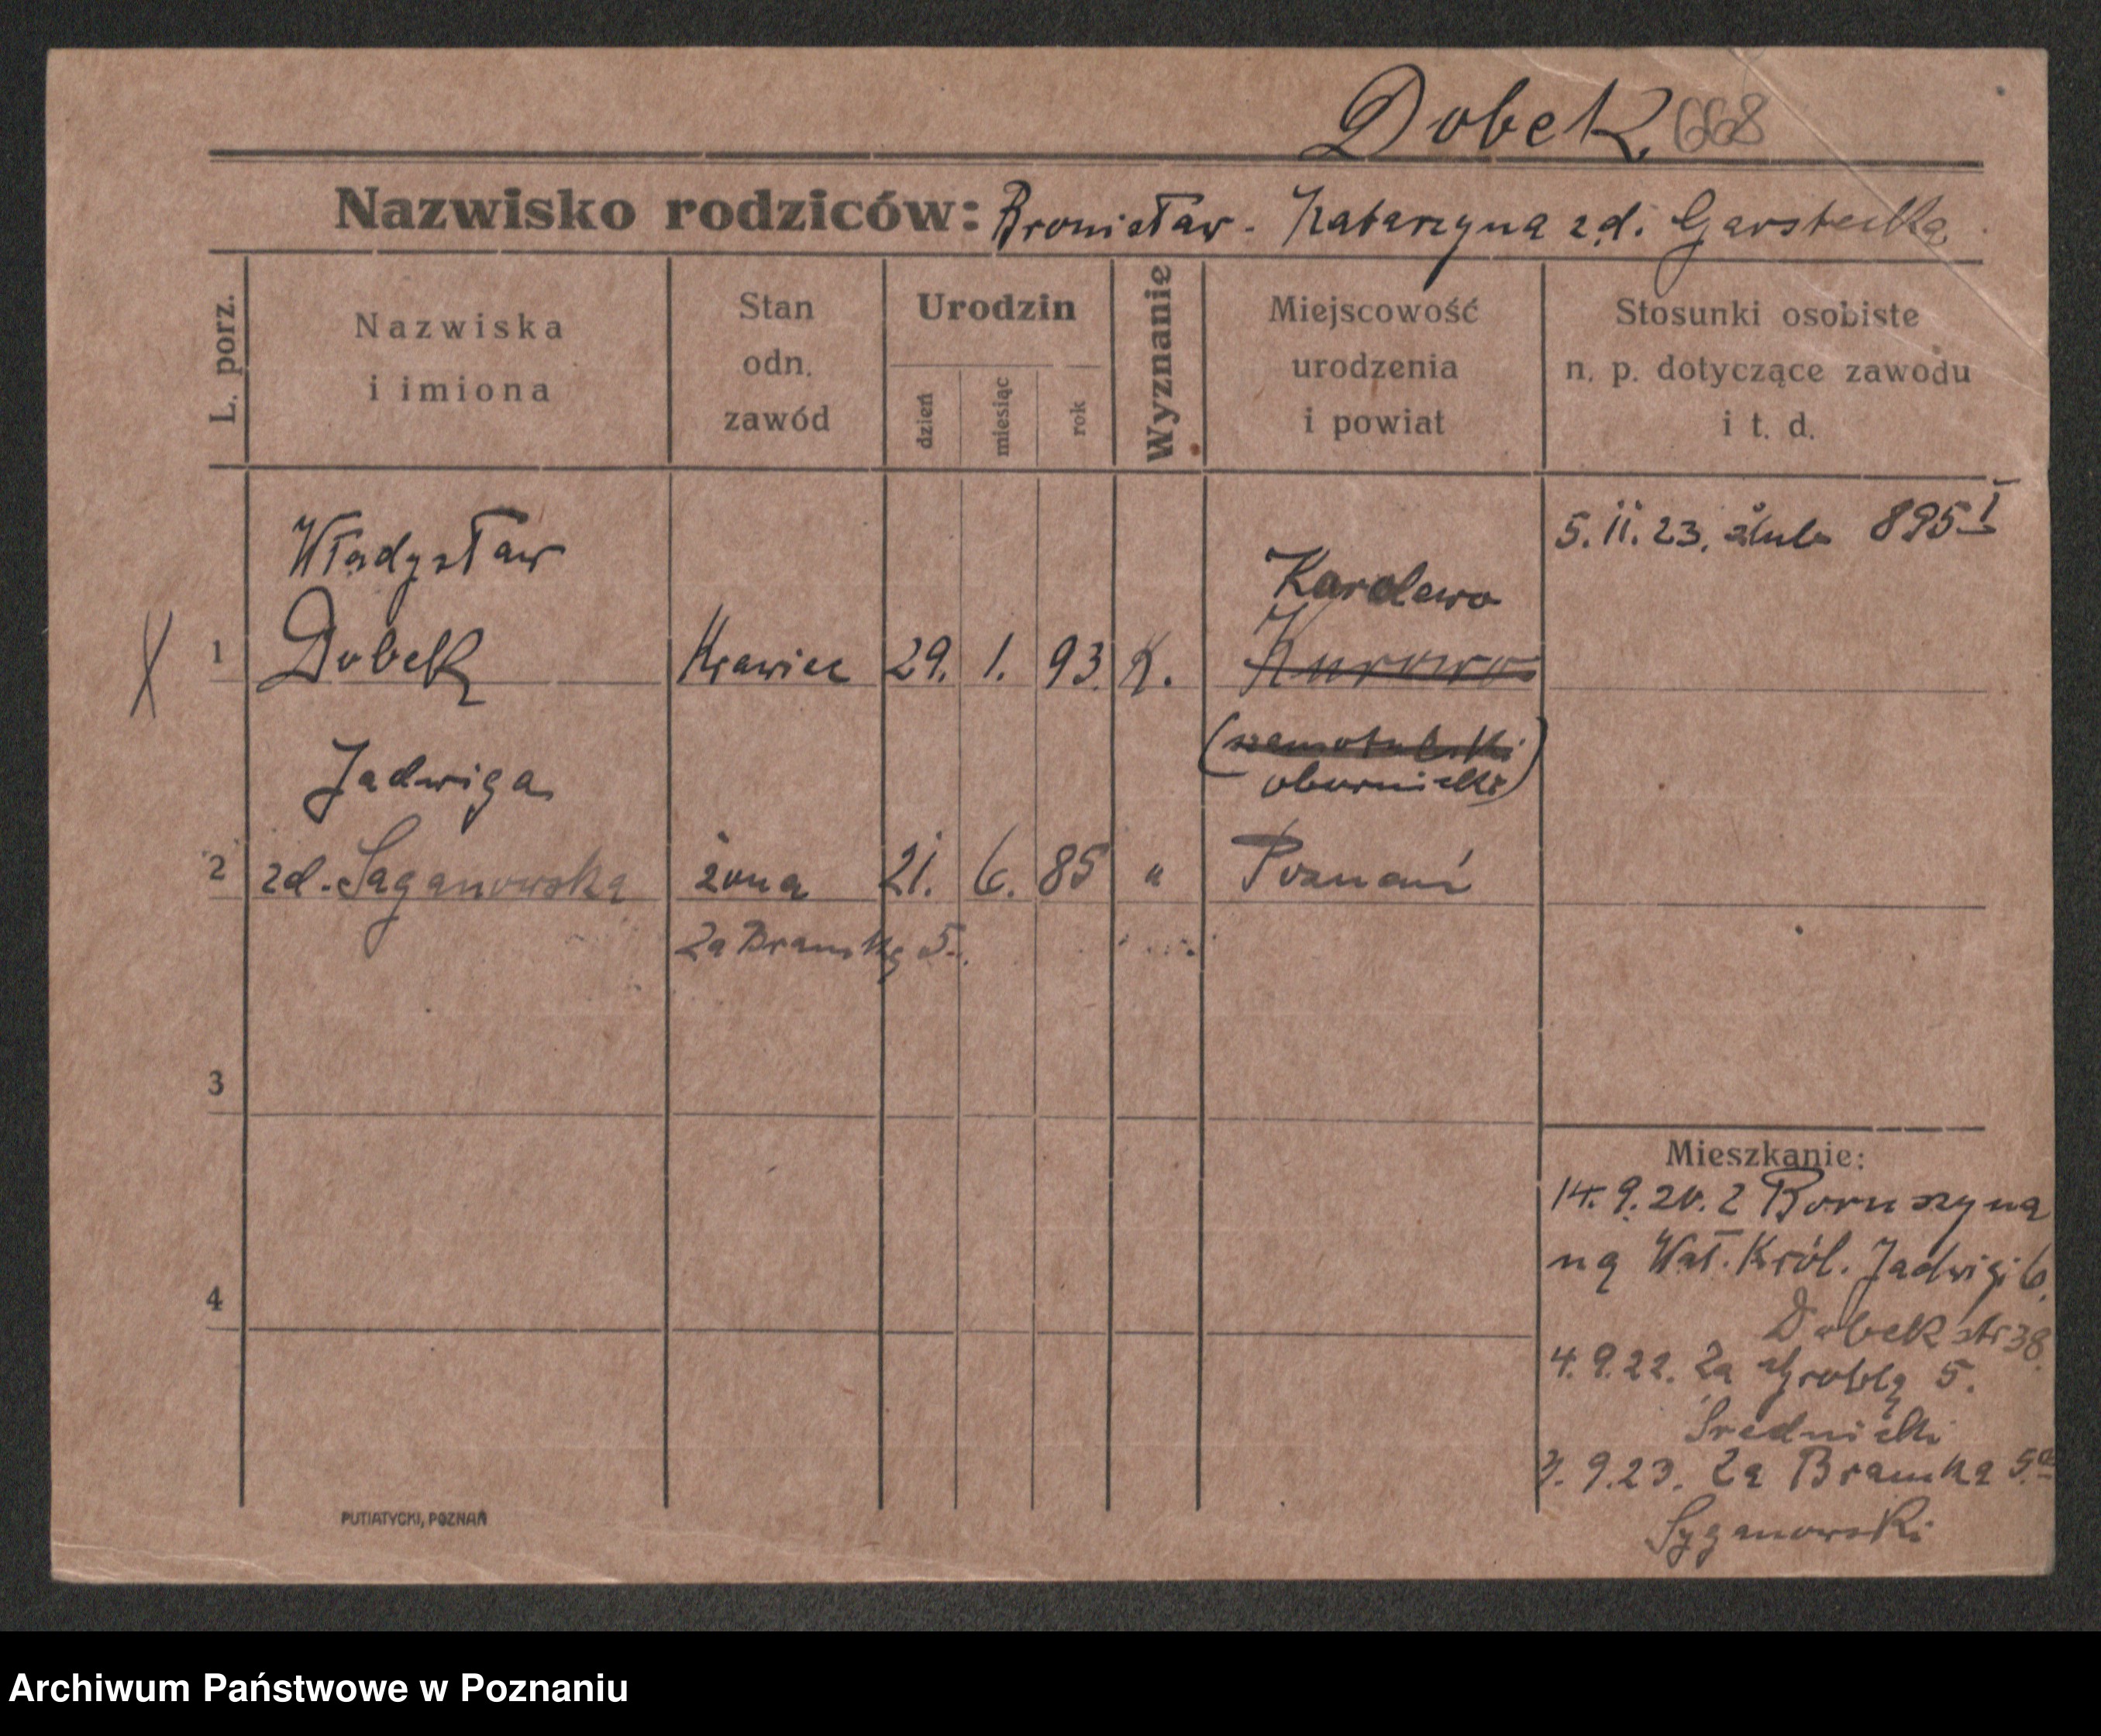 Dobek. 668
Nazwisko rodziców: Bronisław - Katarzyna zd. Garstecka
L. porz.
Nazwiska
i imiona
Stan
odn.
zawód
Urodzin
dzień
miesiąc
rok
Wyznanie
Miejscowość
urodzenia
i powiat
Stosunki osobiste
n. p. dotyczące zawodu
i t. d.
5. 11. 23. 895 I
Władysław
Karolewo
1 Dobek Krawiec 29. 1. 93. K. Kurowo
(szamotulski)
obornicki)
Jadwiga
2 zd. Saganowska żona 21. 6. 85 " Poznań
Za Bramką 5.
3
4
Mieszkanie:
14. 9. 20. z Boruszyna
na Wał. Król. Jadwigi 6.
Dobek str 38.
4. 9. 22. Za Groblą 5.
Srednicki
3. 9. 23. Za Bramką 5a
Syganowski
PUTIATYCKI, POZNAŃ
Archiwum Państwowe w Poznaniu